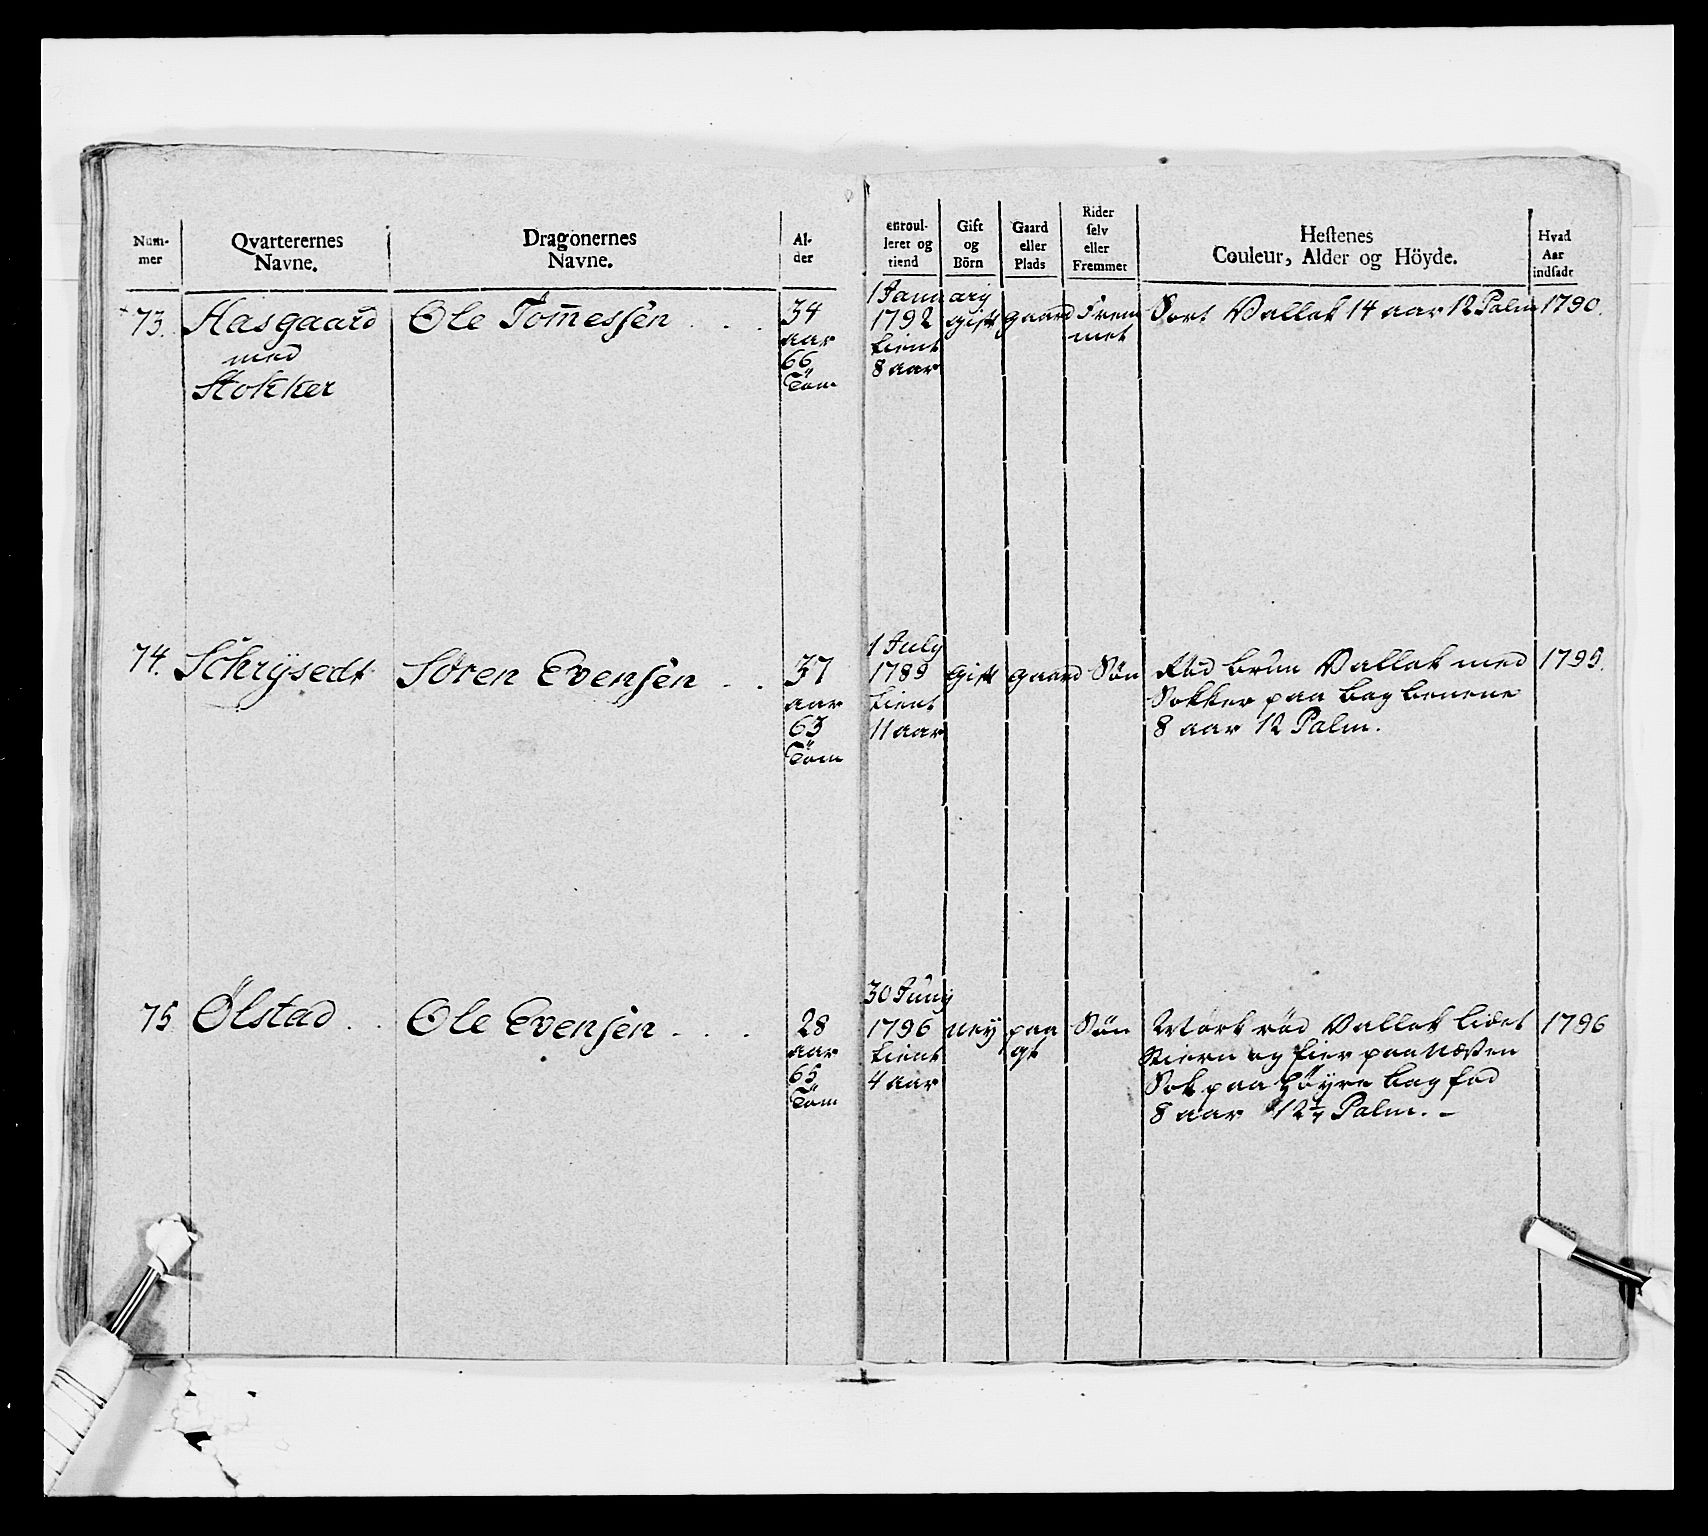 Num-
mer
Qvarterernes
Navne.
Dragonernes
Navne.
Al-
der
enroul-
leret og
tiend
Gift
og
Börn
Gaard
eller
Plads
Rider
selv
eller
Fremmet
Hestenes
Couleur, Alder og Höyde.
Hvad
Aar
indsadt
73. Aasgaard
med
Stokker
Ole Tom̄essen
34
aar
66
Tom
1 January
1792
tient
8 aar
gift
gaard
Frem
met
Sort Vallak 14 aar 12 Palm
1790.
74. Schrÿsedt
Sören Evensen
37
aar
63
Tom
1 July
1789
tient
11 aar
gift
gaard
Søn
Rød brun Vallak med
Sokker paa bag benene
8 aar 12 Palm.
1799.
75 Ølstad
Ole Evensen
28
aar
65
Tom
30 Juny
1796
tient
4 aar
ney
paa
gt
Søn
Mörk rød Vallak lidet
Stiern og fier paa Næsen
Sok paa høyre bag fod
8 aar 12¼ Palm.
1796